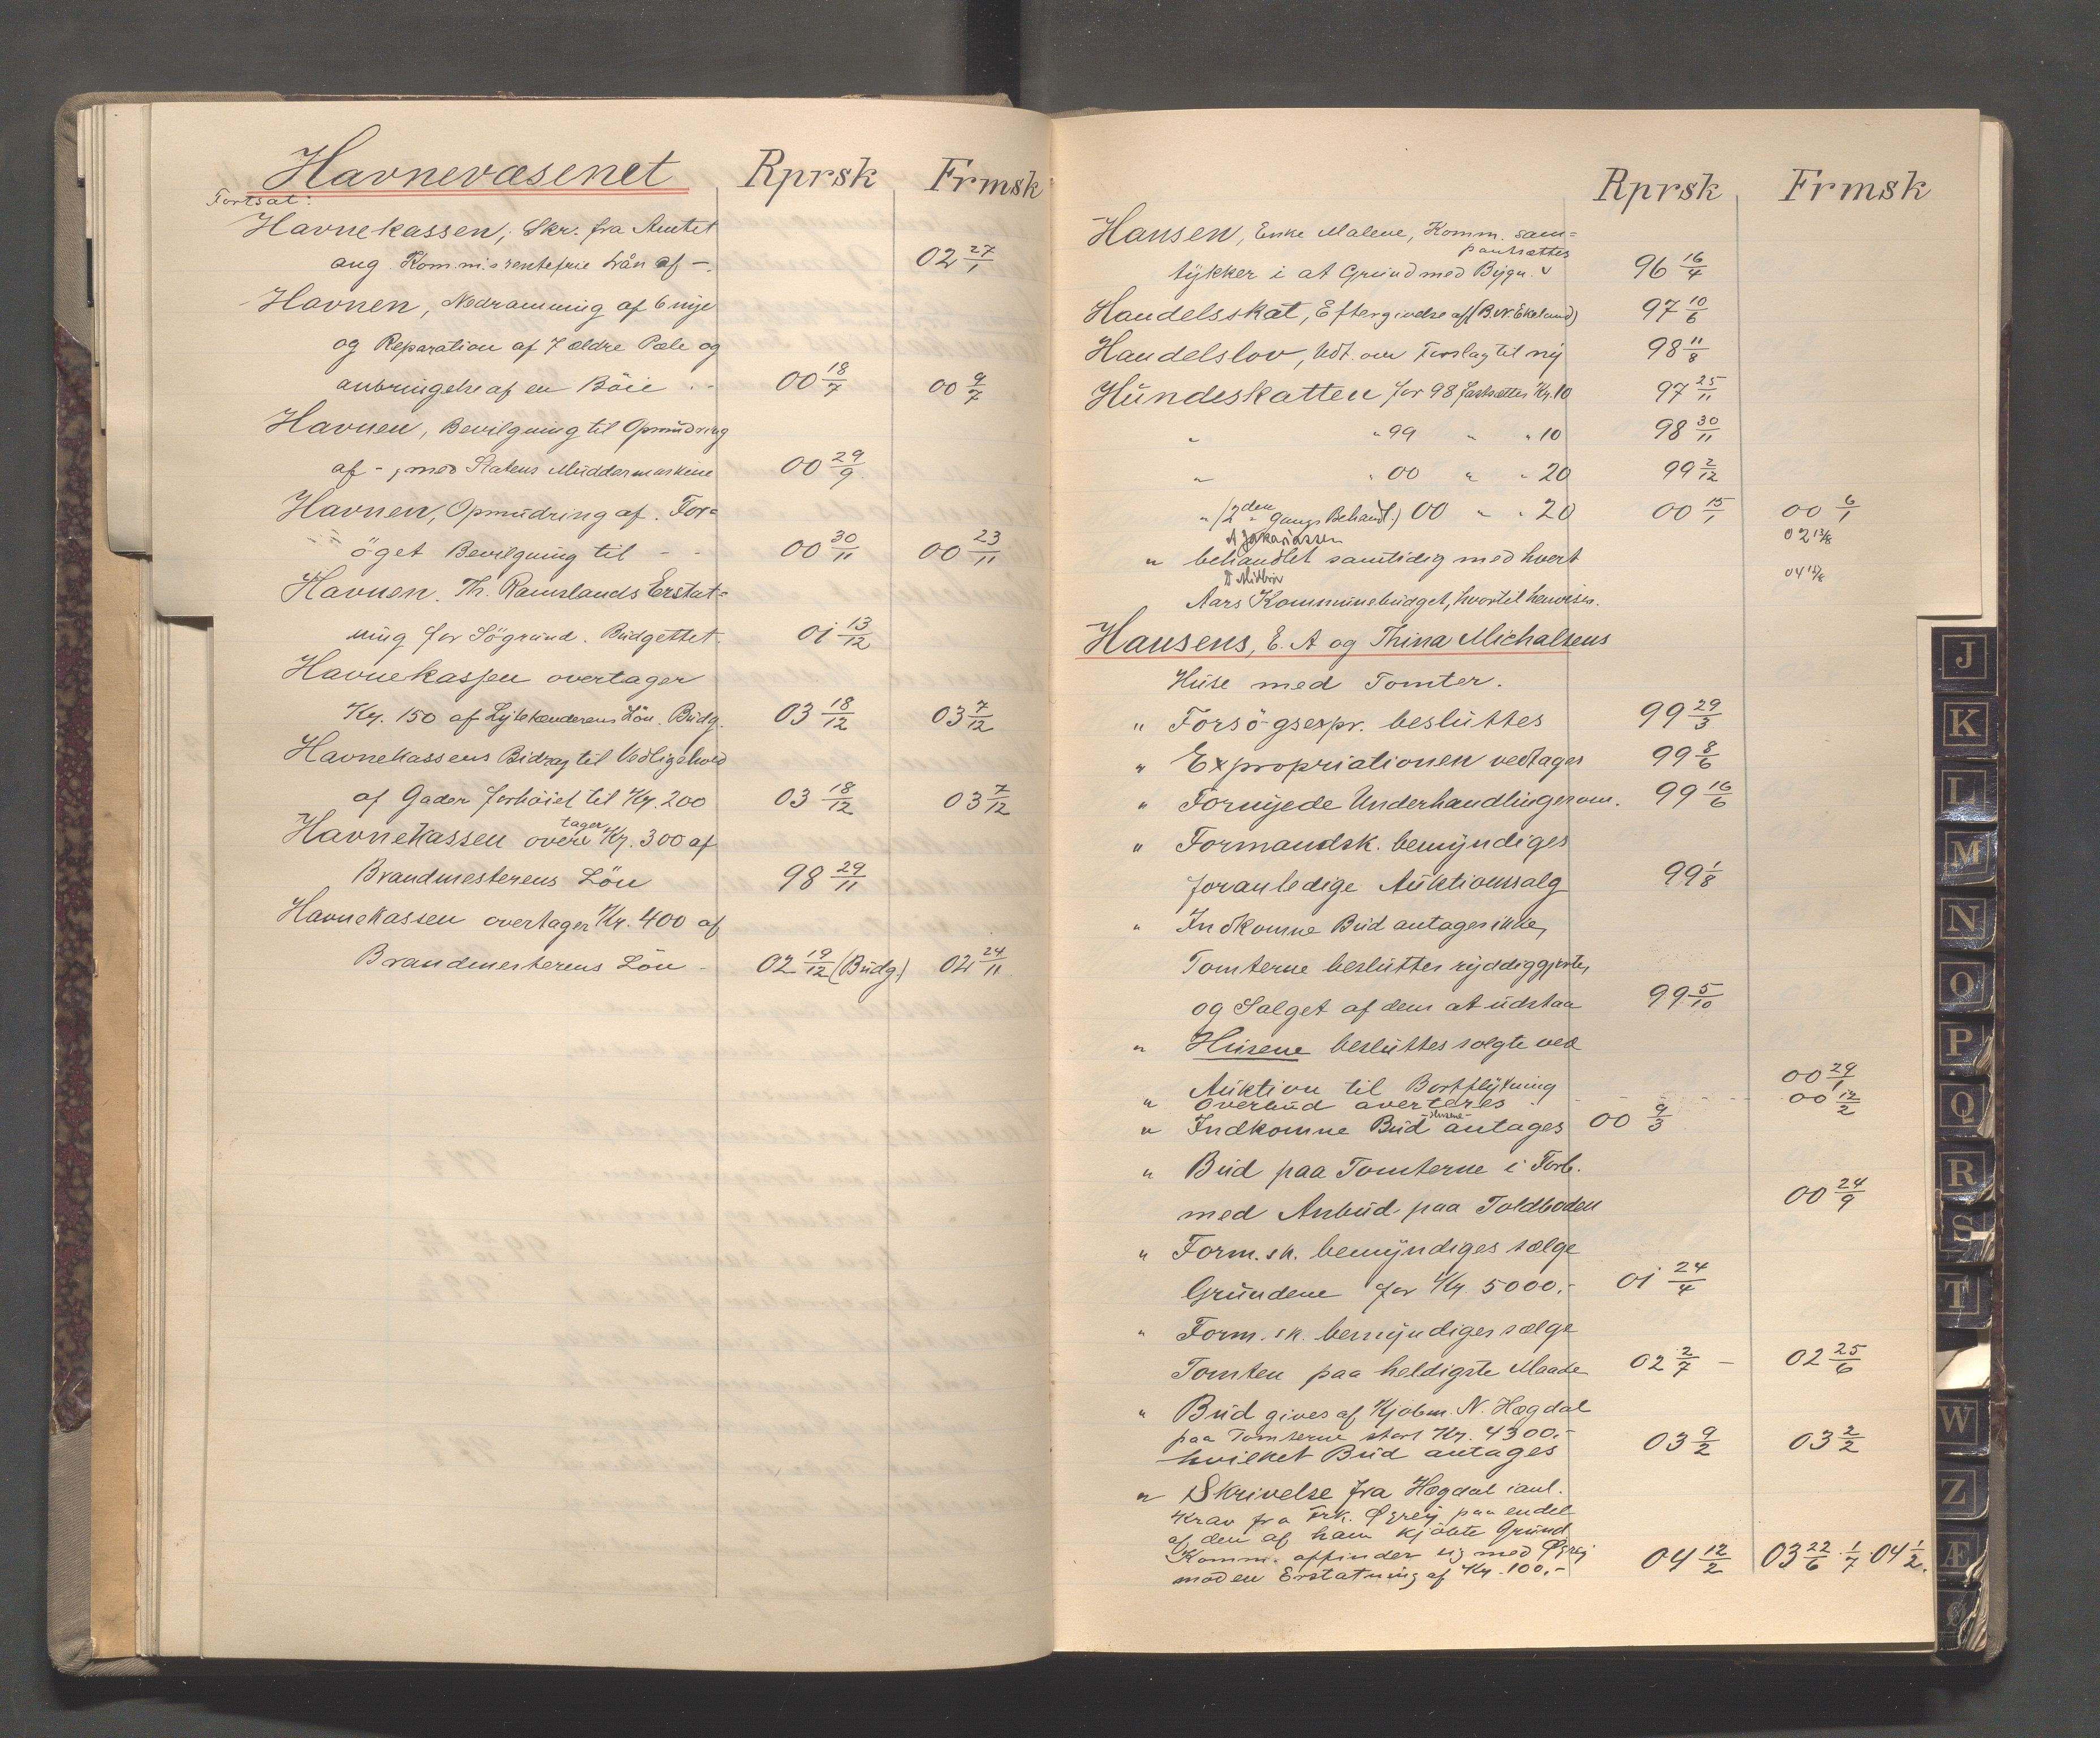 Havnevæsenet Rprsk Frmsk
Fortsat:
Havnekassen, Skr. fra Amtet
ang. Komm.s rentefrie Laan af —. 02 27/1
Havnen, Nedramming af 6 nye
og Reparation af 7 ældre Pæle og
anbringelse af en Böie .. 00 18/7 00 9/7
Havnen, Bevilgning til Opmudring
af -, med Statens Muddermaskine 00 29/9
Havnen, Opmudring af. For=
öget Bevilgning til - - 00 30/11 00 23/11
Havnen. Th. Ramslands Erstat=
ning for Sögrund. Budgettet. 01 13/12
Havnekassen overtager
Kr. 150 af Lygtetænderens Lön. Budg. 03 18/12 03 7/12
Havnekassens Bidrag til Vedligehold
af Gader forhöiet til Kr. 200 03 18/12 03 7/12
Havnekassen overtager Kr. 300 af
Brandmesterens Lön 98 29/11
Havnekassen overtager Kr. 400 af
Brandmesterens Lön - 02 19/12 (Budg.) 02 24/11
Rprsk Frmsk
Hansen, Enke Malene, Komm. sam=
tykker i at Grund med Bygn. pantsættes 96 16/4
Handelsskat, Eftergivelse af (B.N. Ekelund) 97 10/6
Handelslov, Udt. om Forslag til ny 98 11/8
Hundeskatten for 98 fastsættes Kr. 10 97 25/11
" " 99 " " 10 98 30/11
" " 00 " " 20 99 2/12
" (2den Gangs Behandl.) 00 " " 20 00 15/1 00 6/1
02 13/8
" behandlet samtidig med hvert
04 15/8
Aars Kommunebudget, hvortil henvises.
Hansens, E. A og Thina Michalsens
Huse med Tomter.
" Forsögsexpr. besluttes 99 29/3
" Expropriationen vedtages 99 8/6
" Fornyede Underhandlinger om. 99 16/6
" Formandsk. bemyndiges
foranledige Auktionssalg 99 1/8
" Indkomne Bud antages ikke,
Tomterne besluttes ryddiggjorte,
og Salget af dem at udstaa 99 5/10
" Husene besluttes solgte ved
Auktion til Bortflytning 00 29/1
" Overbud averteres - 00 12/2
" Indkomne Bud -Husene- antages 00 9/3
" Bud paa Tomterne i Forb.
med Anbud paa Toldboden 00 24/9
" Form.sk. bemyndiges sælge
Grundene for Kr. 5000.- 01 24/4
" Form.sk. bemyndiges sælge
Tomten paa heldigste Maade 02 2/7 — 02 25/6
" Bud gives af Kjøbm. N. Hægdal
paa Tomterne stort Kr. 4300.-
hvilket Bud antages 03 9/2 03 2/2
" Skrivelse fra Hægdal i anl.
Krav fra Frk. paa endel
af den af ham kjöbte Grund
Komm. affinder sig med
mod en Erstatning af Kr. 100.- 04 12/2 03 22/6 . 1/7 . 04 1/2.
J
K
L
M
N
O
P
Q
R
S
T
W
Z
Æ
Ø